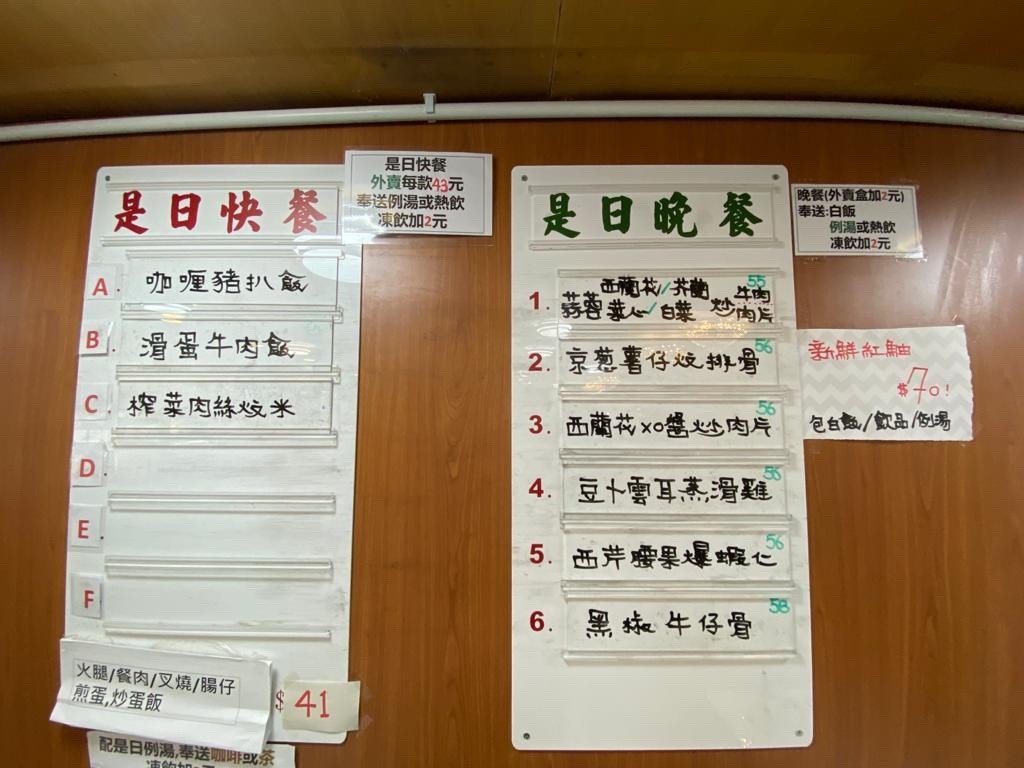 是日快餐
A. 咖喱豬扒飯
B. 滑蛋牛肉飯
C. 榨菜肉絲炆米
D.
E.
F.
火腿/餐肉/叉燒/腸仔
煎蛋,炒蛋飯
$41
配是日例湯,奉送咖啡或茶
是日快餐
外賣每款43元
奉送例湯或熱飲
凍飲加2元
是日晚餐
1. 西蘭花/芥蘭 牛肉 55
蒜蓉菜心/白菜 炒肉片
2. 京葱薯仔炆排骨 56
3. 西蘭花XO醬炒肉片 56
4. 豆卜雲耳蒸滑雞
5. 西芹腰果爆蝦仁 56
6. 黑椒牛仔骨 58
晚餐(外賣盒加2元)
奉送:白飯
例湯或熱飲
凍飲加2元
新鮮紅鮋
$70!
包白飯/飲品/例湯